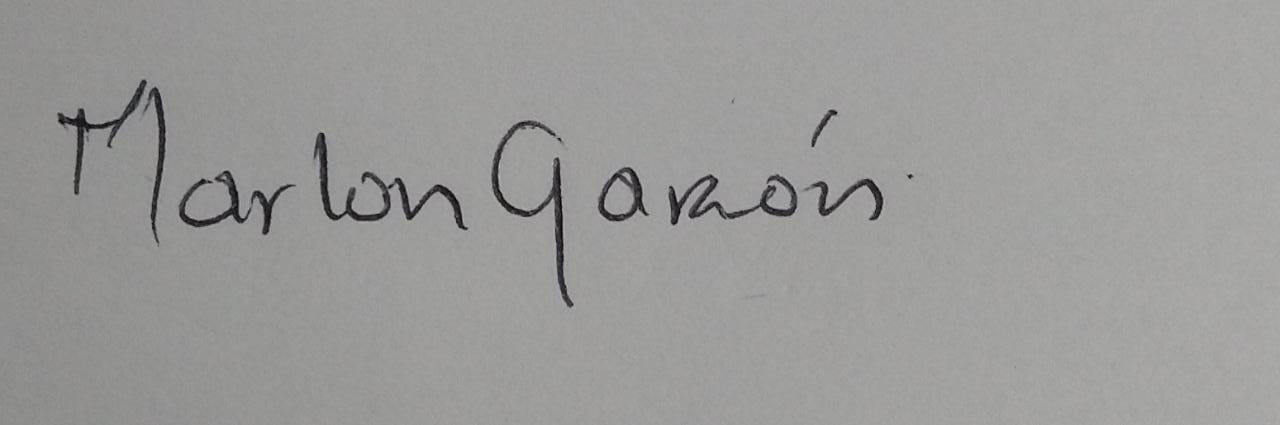 Marlon Garzón